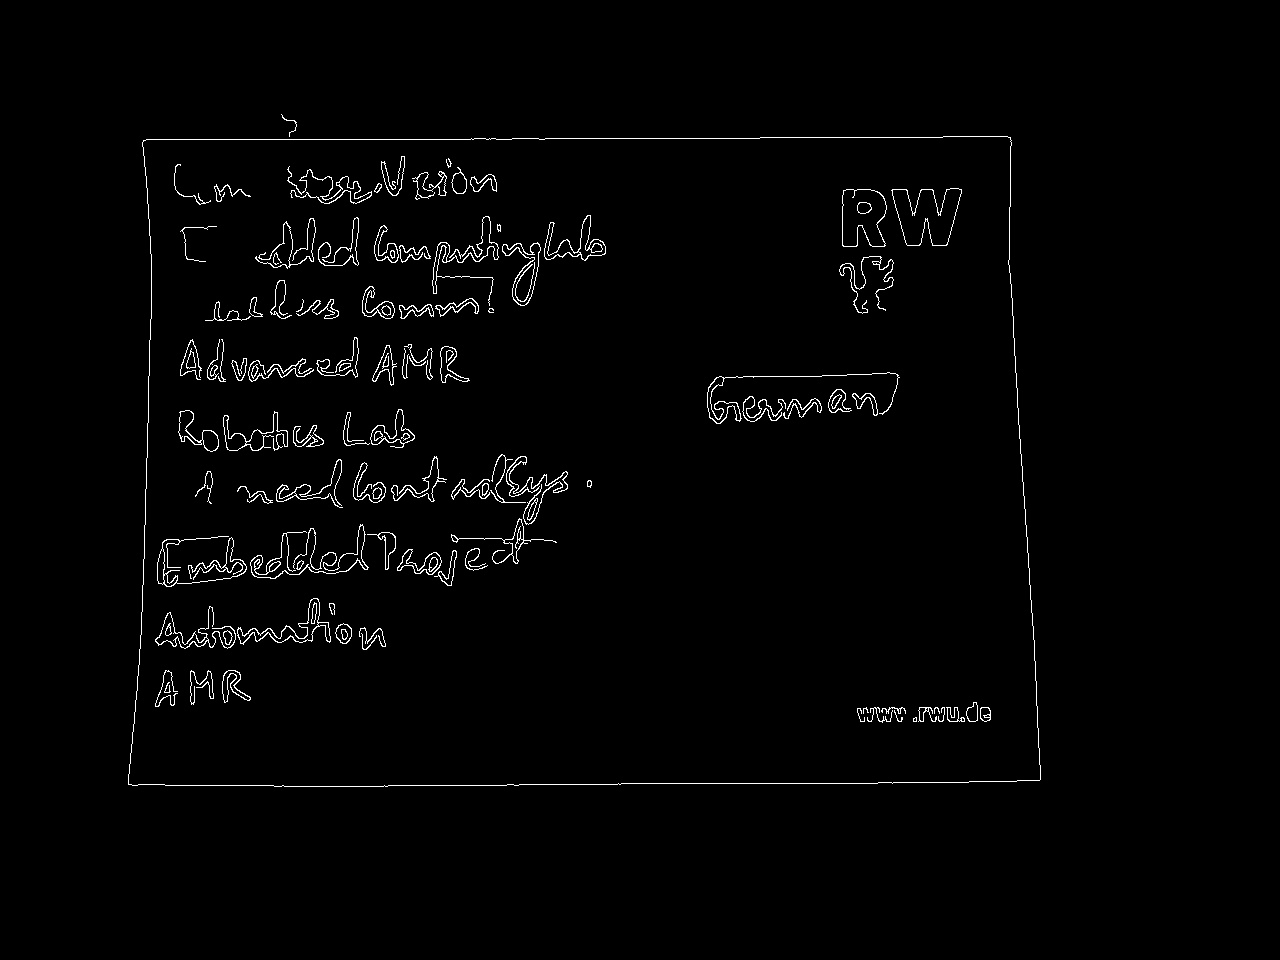 Vision
Computing Lab
Comm.
Advanced AMR
Robotics Lab
need Control Sys.
Embedded Project
Automation
AMR
RW
German
www.rwu.de